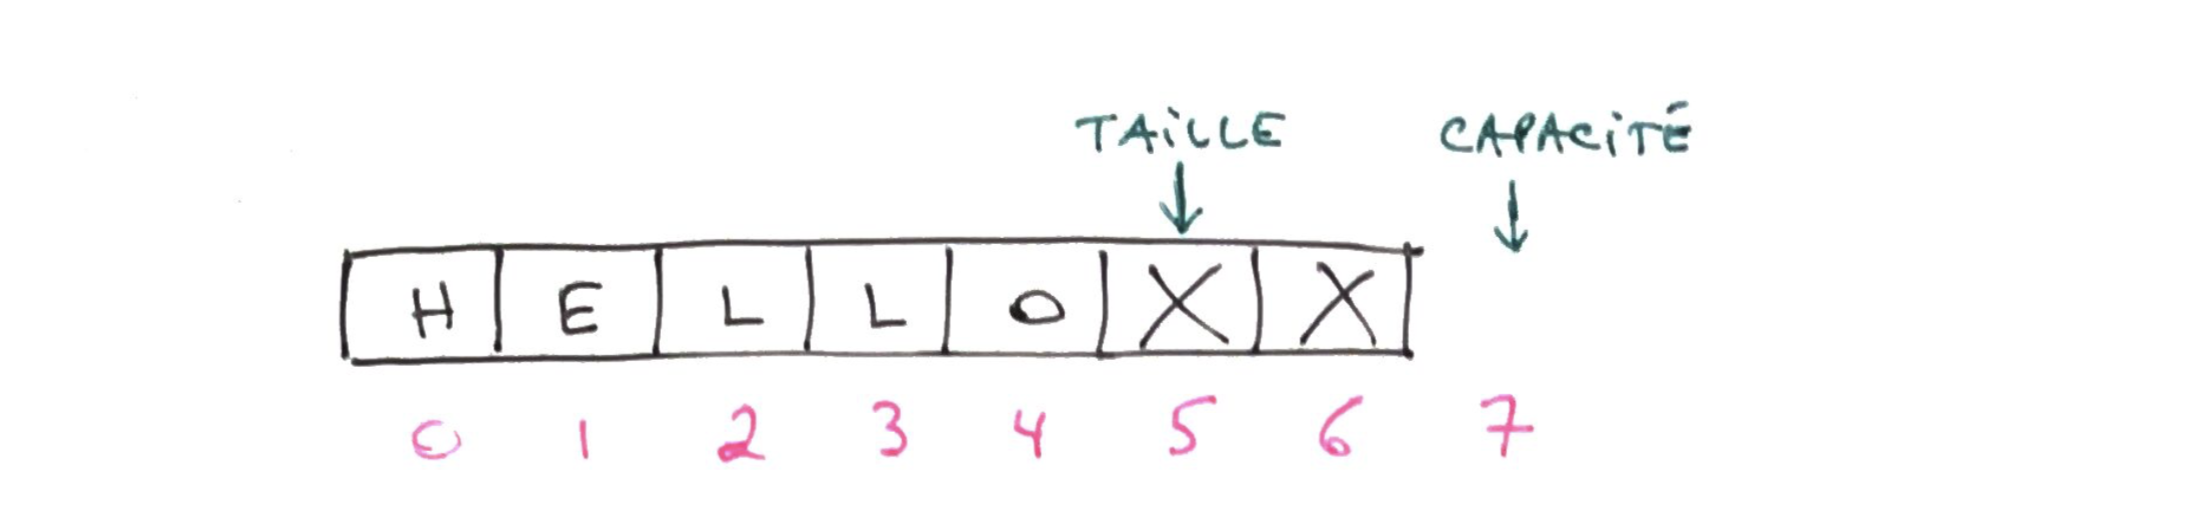 TAILLE CAPACITÉ
H E L L O X X
0 1 2 3 4 5 6 7